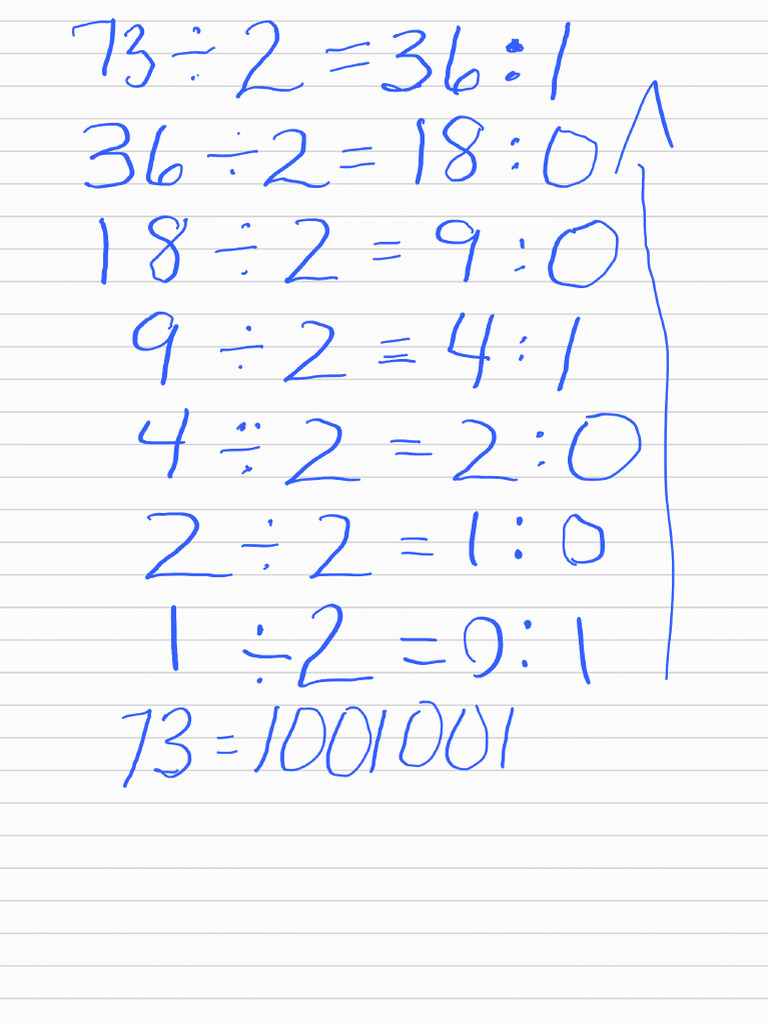 73 ÷ 2 = 36 : 1
36 ÷ 2 = 18 : 0
18 ÷ 2 = 9 : 0
9 ÷ 2 = 4 : 1
4 ÷ 2 = 2 : 0
2 ÷ 2 = 1 : 0
1 ÷ 2 = 0 : 1
73 = 1001001